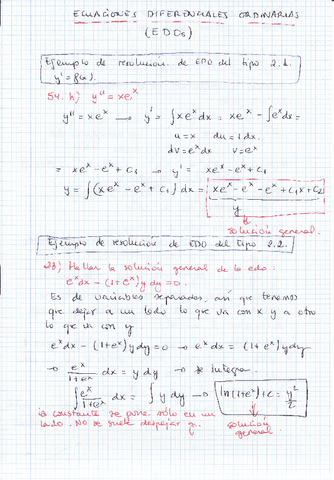 ECUACIONES DIFERENCIALES ORDINARIAS
(EDOs)
Ejemplo de resolución de EDO del tipo 2.1.
y' = f(x).
54. h) y'' = xe^x
y'' = xe^x → y' = ∫xe^x dx = xe^x - ∫e^x dx =
u = x du = 1dx
dv = e^x dx v = e^x
= xe^x - e^x + C1 → y' = xe^x - e^x + C1
y = ∫(xe^x - e^x + C1) dx = xe^x - e^x - e^x + C1x + C2
y
solución general.
Ejemplo de resolución de EDO del tipo 2.2.
23) Hallar la solución general de la edo:
e^x dx - (1+e^x) y dy = 0.
Es de variables separadas, así que tenemos
que dejar a un lado lo que va con x y a otro
lo que va con y
e^x dx - (1+e^x) y dy = 0 → e^x dx = (1+e^x) y dy
→ e^x/(1+e^x) dx = y dy → Integrar
∫ e^x/(1+e^x) dx = ∫ y dy → ln(1+e^x) + C = y²/2
la constante se pone sólo en un
lado. No se suele despejar y.
solución
general.